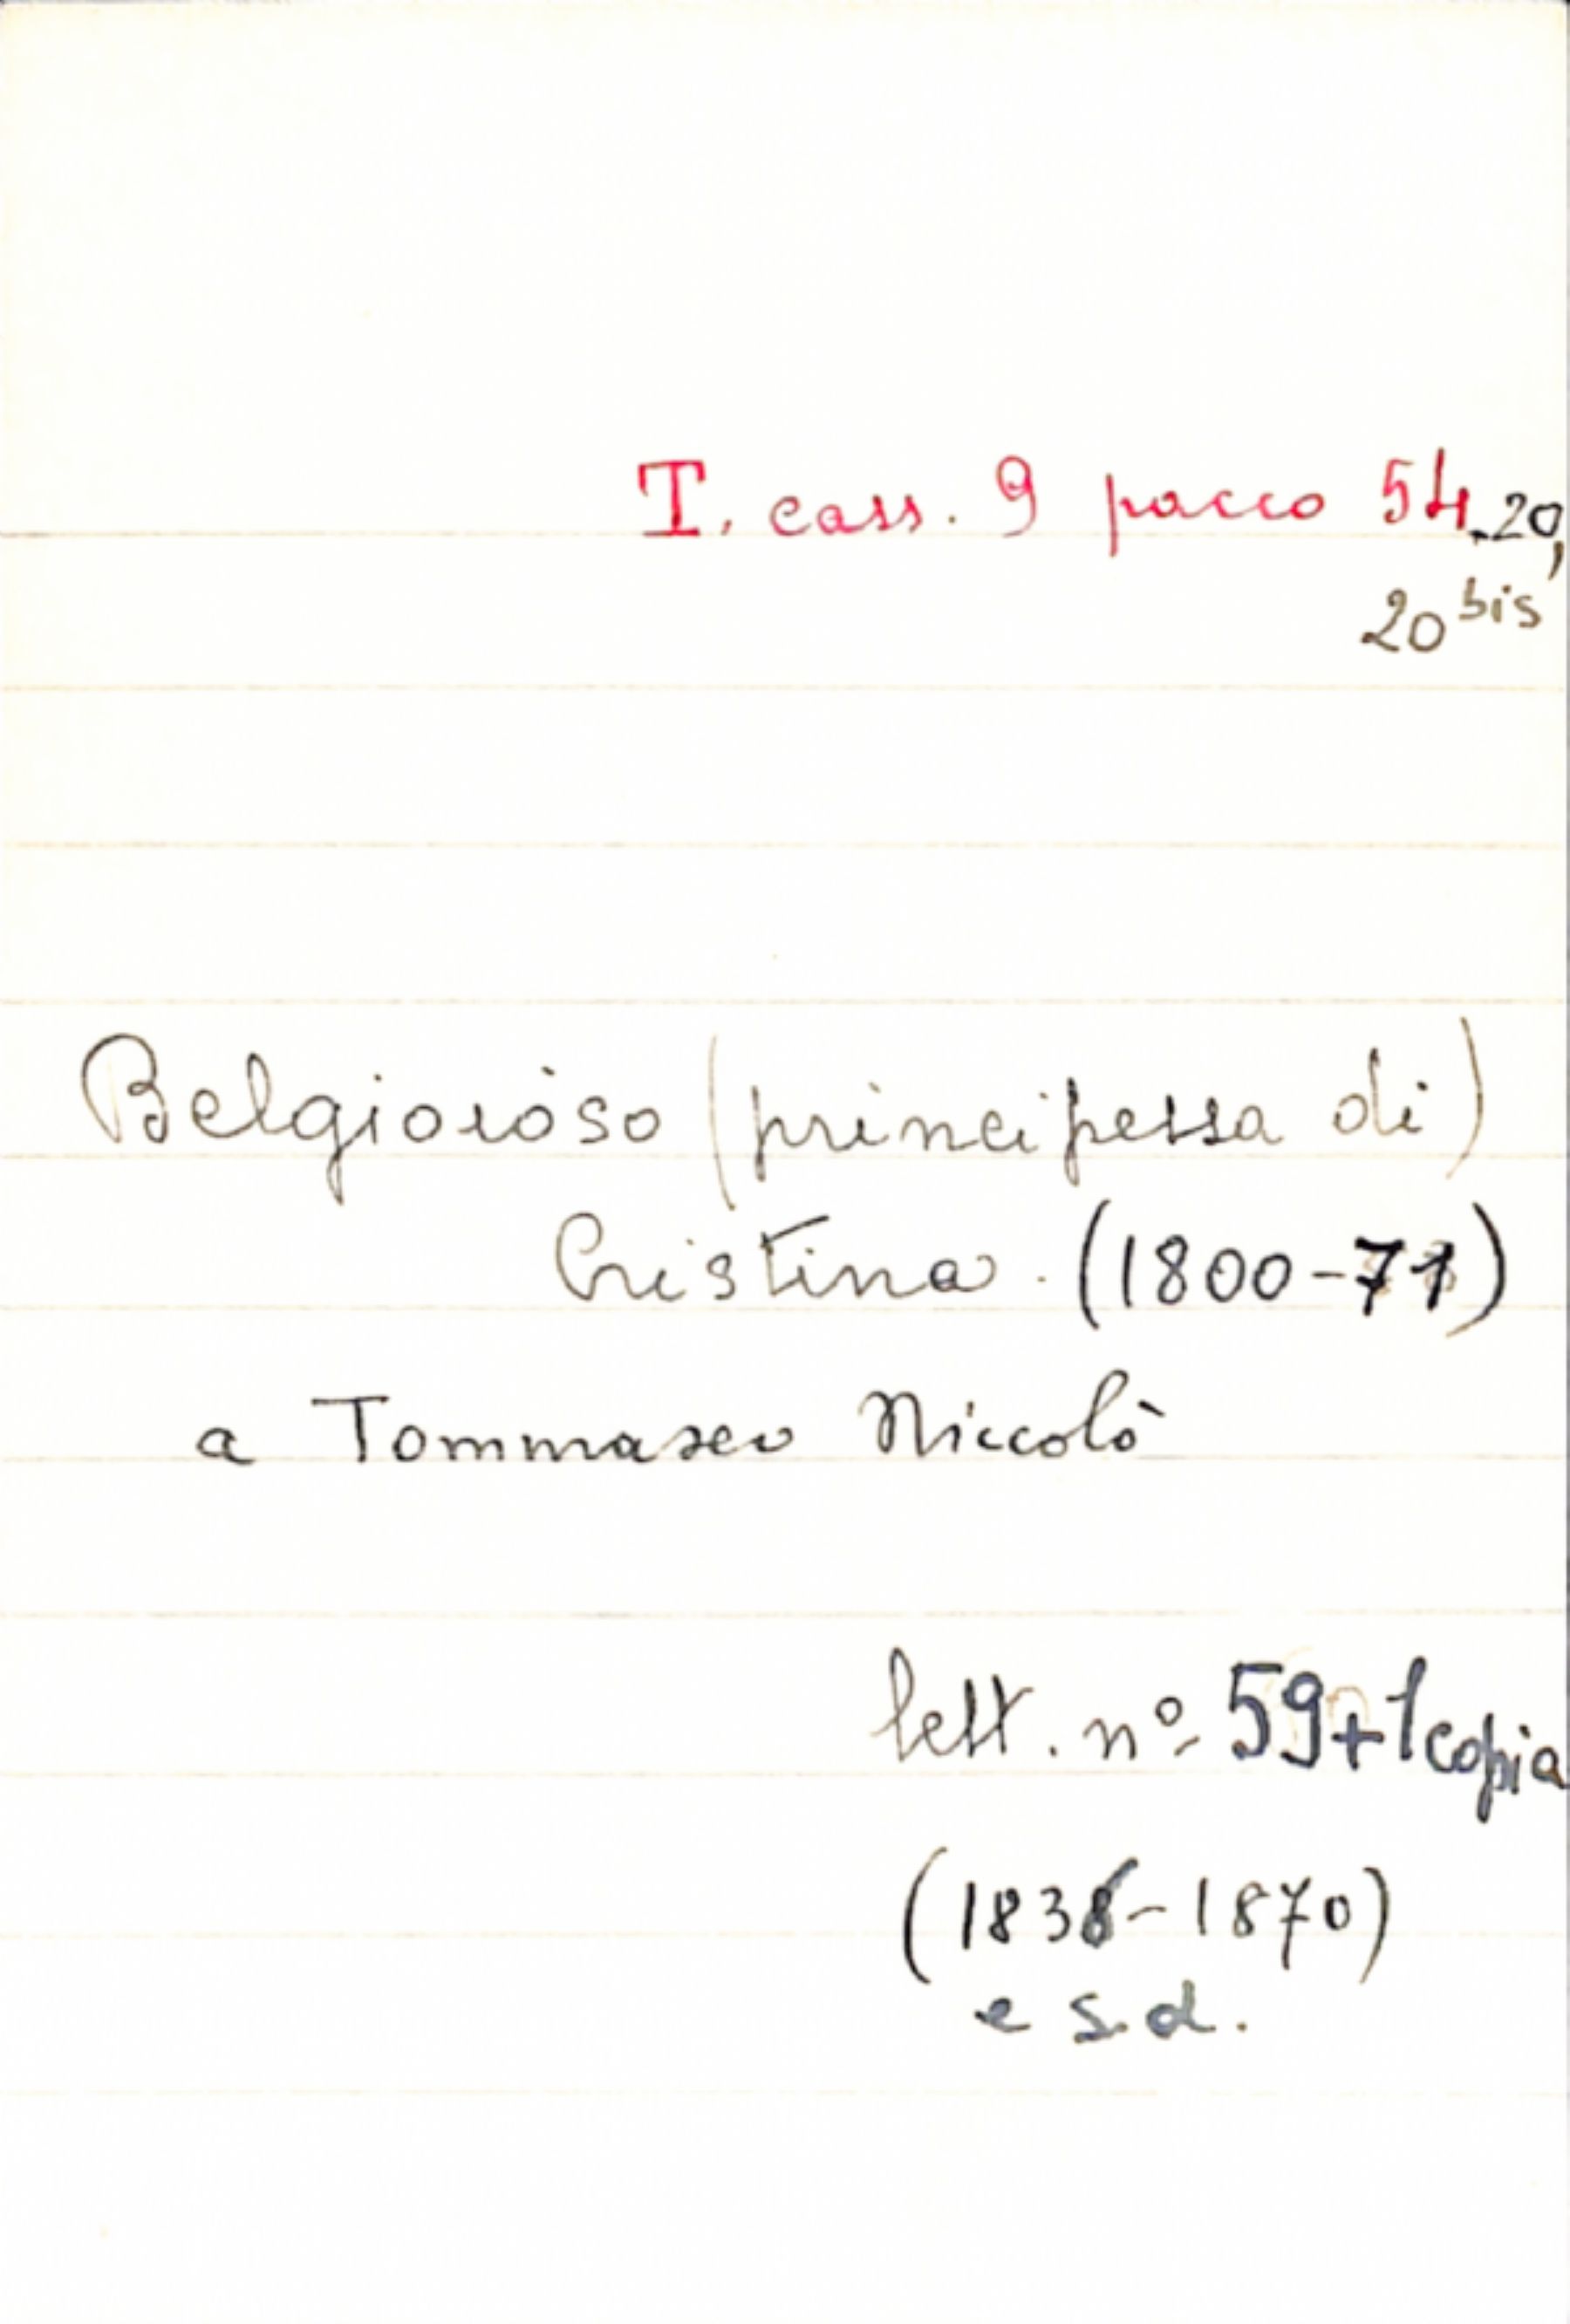 T. cass. 9 pacco 54.20,
20 bis
Belgioioso (principessa di)
Cristina. (1800-71)
a Tommaseo Niccolò
lett. nº 59+1 copia
(1836-1870)
e s.d.